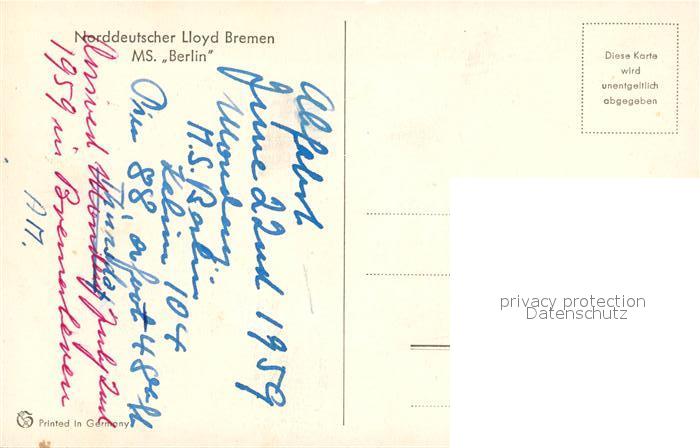 Norddeutscher Lloyd Bremen
MS. „Berlin"
Diese Karte
wird
unentgeltlich
abgegeben
Abfahrt
June 22nd 1959
Monday
M.S. Berlin
Kabin 104
Pier 88, foot 48th
Arrived Monday July 2nd
Thursday
1959 in Bremerhaven
A M.
privacy protection
Datenschutz
Printed in Germany